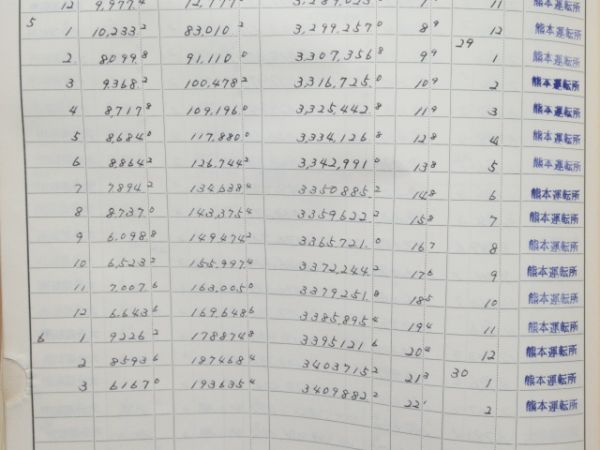 12 9,977.4 11
5 1 10,233.2 83,010.2 3,299,257.0 8 9 12 熊本運転所
2 8099.8 91,110.0 3,307,356.8 9 9 29 1 熊本運転所
3 9368.2 100,478.2 3,316,725.0 10 9 2 熊本運転所
4 8,717.8 109,196.0 3,325,442.8 11 9 3 熊本運転所
5 8,684.0 117,880.0 3,334,126.8 12 8 4 熊本運転所
6 8,864.2 126,744.2 3,342,991.0 13 8 5 熊本運転所
7 7894.2 134638.4 3350885.2 14 8 6 熊本運転所
8 8737.0 143,375.4 3359622.2 15 8 7 熊本運転所
9 6,098.8 149,474.2 3365,721.0 16 7 8 熊本運転所
10 6,523.2 155,997.4 3,372,244.2 17 6 9 熊本運転所
11 7,007.6 163,005.0 3379251.8 18 5 10 熊本運転所
12 6,643.6 169,648.6 3385,895.4 19 4 11 熊本運転所
6 1 9226.2 178874.8 3395121.6 20 4 12 熊本運転所
2 8593.6 187468.4 3403715.2 21 3 30 1 熊本運転所
3 6167.0 193635.4 3409882.2 22 1 2 熊本運転所